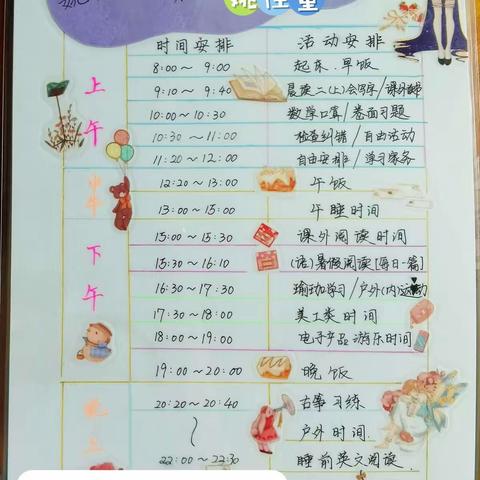 时间安排 活动安排
上午
8:00～9:00 起床、早饭
9:10～9:40 晨读二(上)会写字/课外
10:00～10:30 数学口算/卷面习题
10:30～11:00 检查纠错/自由活动
11:20～12:00 自由安排/学习家务
中午
12:20～13:00 午饭
13:00～15:00 午睡时间
下午
15:00～15:30 课外阅读时间
15:30～16:10 (语)暑假阅读[每日一篇]
16:30～17:30 瑜珈学习/户外(内)运动
17:30～18:00 美工类时间
18:00～19:00 电子产品游乐时间
19:00～20:00 晚饭
晚上
20:20～20:40 古筝习练
～ 户外时间.
22:00～22:30 睡前英文阅读.